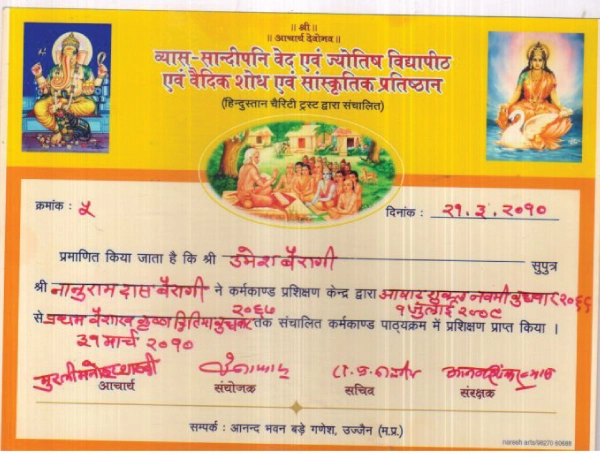 ॥ श्री ॥
॥ आचार्य देवोभव ॥
व्यास-सान्दीपनि वेद एवं ज्योतिष विद्यापीठ
एवं वैदिक शोध एवं सांस्कृतिक प्रतिष्ठान
(हिन्दुस्तान चैरिटी ट्रस्ट द्वारा संचालित)
क्रमांक : ५
दिनांक : २१.३.२०१०
प्रमाणित किया जाता है कि श्री उमेश बैरागी सुपुत्र
श्री नानुराम दास बैरागी ने कर्मकाण्ड प्रशिक्षण केन्द्र द्वारा आषाढ शुक्ल नवमी बुधवार २०६६
२०६७ १ जुलाई २००९
से प्रथम वैशाख कृष्ण द्वितिया बुधवार तक संचालित कर्मकाण्ड पाठ्यक्रम में प्रशिक्षण प्राप्त किया ।
३१ मार्च २०१०
आचार्य संयोजक सचिव संरक्षक
सम्पर्क : आनन्द भवन बड़े गणेश, उज्जैन (म.प्र.)
naresh arts/98270 60686